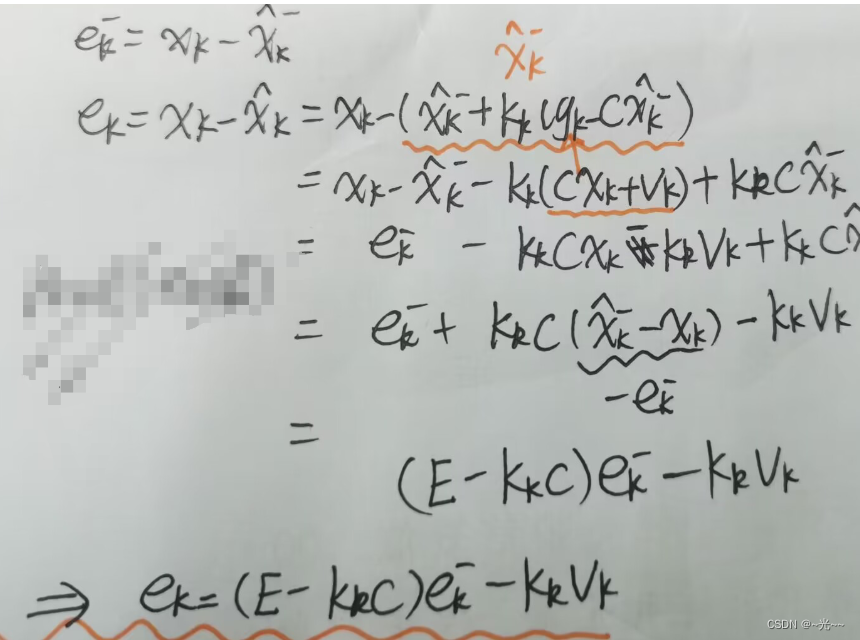 eₖ⁻ = xₖ - x̂ₖ⁻
x̂ₖ⁻
eₖ = xₖ - x̂ₖ = xₖ - (x̂ₖ⁻ + kₖ(yₖ - Cx̂ₖ⁻)
= xₖ - x̂ₖ⁻ - kₖ(Cxₖ + vₖ) + kₖCx̂ₖ⁻
= eₖ⁻ - kₖCxₖ - kₖvₖ + kₖCx̂
= eₖ⁻ + kₖC(x̂ₖ⁻ - xₖ) - kₖvₖ
-eₖ⁻
=
(E - kₖC)eₖ⁻ - kₖvₖ
⇒ eₖ = (E - kₖC)eₖ⁻ - kₖvₖ
CSDN @~光~~